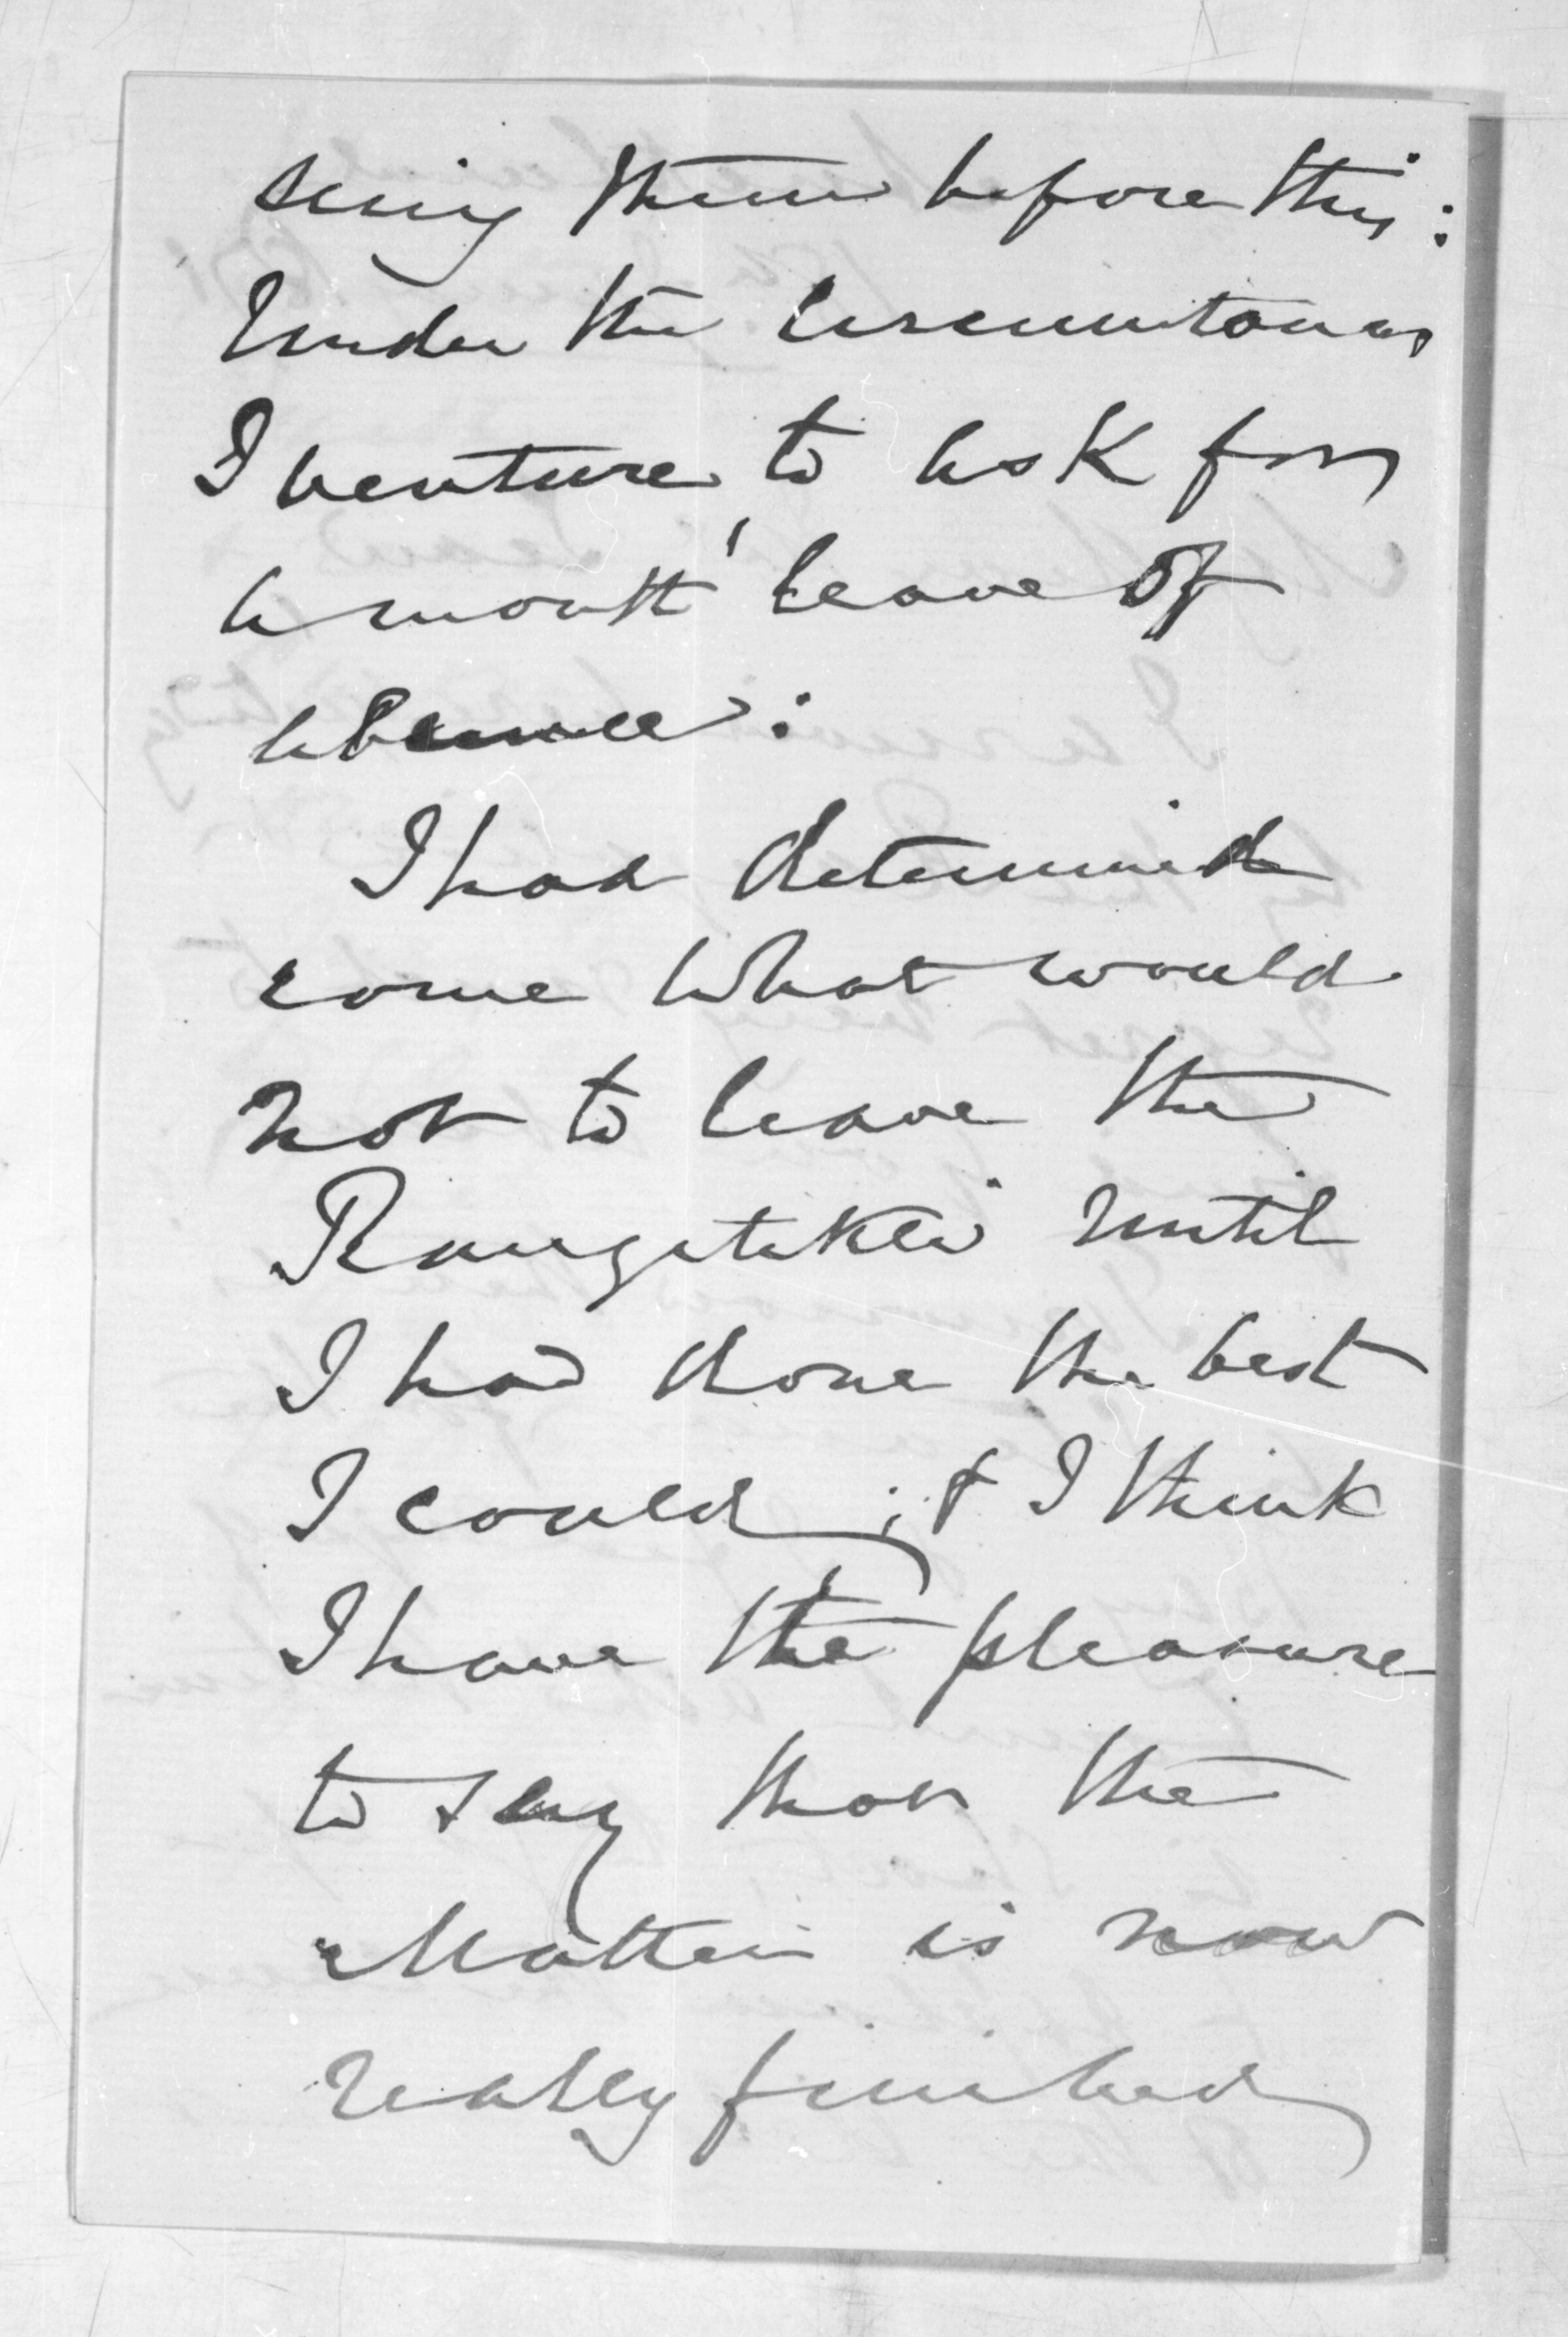 seeing them before this:
Under the circumstances
I venture to ask for
a month' leave of
absence:
I had determined
come what would
not to leave the
Rangitikei until
I had done the best
I could; & I think
I have the pleasure
to say that the
Matter is now
really finished